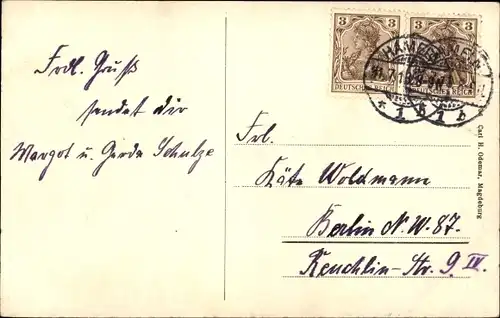 Frdl. Gruß
sendet dir
Margot u. Gerda Schulze
3 3
DEUTSCHES REICH DEUTSCHES REICH
HAMELN
* 1 b 1 b
Frl.
Käte Woldmann
Berlin N.W. 87.
Reuchlin-Str. 9 IV.
Carl H. Odemar, Magdeburg